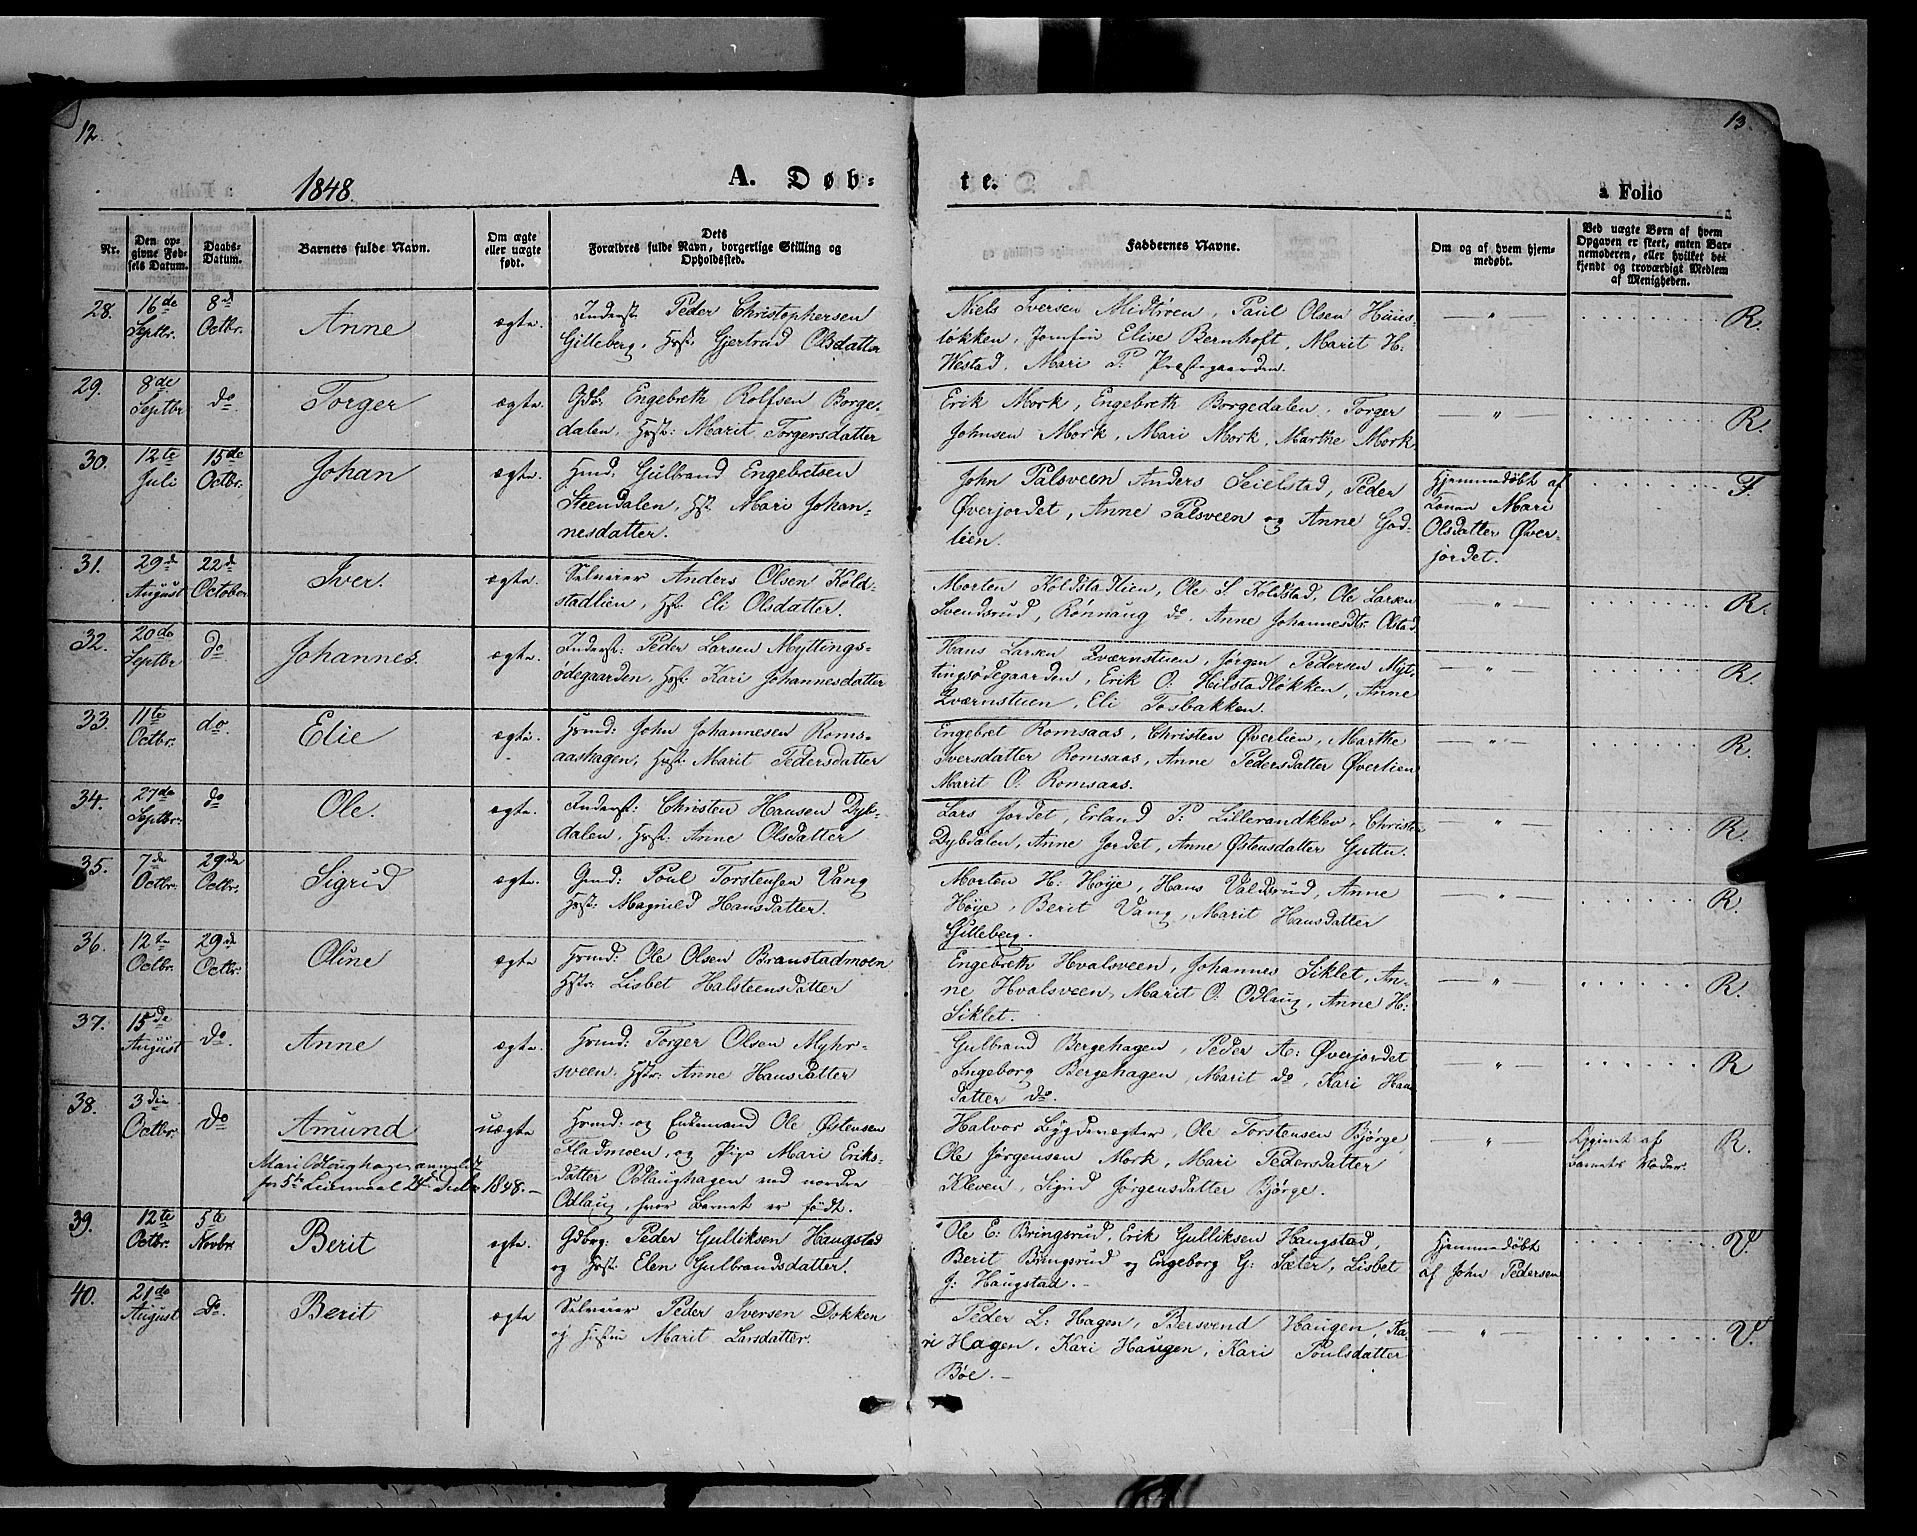 12.
13.
1848.
A. Døb-
te.
a Folio
Nr.
Den op-
givne Fød-
sels Datum.
Daabs-
Datum.
Barnets fulde Navn.
Om ægte
eller uægte
født.
Dets
Forældres fulde Navn, borgerlige Stilling og
Opholdssted.
Faddernes Navne.
Om og af hvem hjem-
medøbt.
Ved uægte Børn af hvem
Opgaven er skeet, enten Bar-
nemoderen, eller hvilket be-
kjendt og troværdigt Medlem
af Menigheden.
28. 16de Septbr. 8de Octbr. Anne ægte. Inderst: Peder Christophersen
Gilleberg, Hst: Gjertrud Olsdatter
Niels Iversen Midtrøen, Paul Olsen Huus-
løkken, Jomfru Elise Bernhoft, Marit H:
Westad, Mari P. Præstegaarden. R.
29. 8de Septbr do Torger ægte. Gdb: Engebreth Rolfsen Borge-
dalen, Hst: Marit Torgersdatter
Erik Mork, Engebreth Borgedalen, Torger
Johnsen Mork, Mari Mork, Marthe Mork R.
30. 12te Juli 15de Octbr. Johan ægte. Hmd: Gulbrand Engebretsen
Steendalen, Hst. Mari Johan-
nesdatter.
John Palsveen Anders Seielstad, Peder
Øverjordet, Anne Palsveen og Anne God-
lien.
Hjemmedøbt af
Konen Mari
Olsdatter Øver-
jordet.
F.
31. 29de August 22de October Iver. ægte. Selveier Anders Olsen Kold-
stadlien, Hst: Eli Olsdatter.
Morten Koldstadlien, Ole S. Koldstad, Ole Larsen
Svendsrud, Rønnaug do. Anne Johannesdtr Olstad R.
32. 20de Septbr do Johannes. ægte. Inderst: Peder Larsen Myttings-
ødegaarden, Hst: Kari Johannesdatter
Hans Larsen Kværnstuen, Jørgen Pedersen Myt-
tingsødegaarden, Erik O. Hilstadløkken, Anne
Kværnstuen, Eli Fosbakken. R.
33. 11te Octbr. do. Elie ægte. Hmd: John Johannesen Roms-
aashagen, Hst: Marit Pedersdatter
Engebret Romsaas, Christen Øverlien, Marthe
Iversdatter Romsaas, Anne Pedersdatter Øverlien
Marit O. Romsaas. R.
34. 27de Septbr: do Ole. ægte. Inderst: Christen Hansen Dyb-
dalen, Hst: Anne Olsdatter
Lars Jordet, Erland P: Lillerandklev, Christen
Dybdalen, Anne Jordet, Anne Østensdatter Guttu. R.
35. 7de Octbr. 29de Octbr. Sigrid ægte. Gmd: Poul Torstensen Vang
Hst: Magnild Hansdatter.
Morten H: Høye, Hans Valdsrud, Anne
Høye, Berit Vang, Marit Hansdatter
Gilleberg. R.
36. 12te Octbr. 29de Octbr. Oline ægte Hmd: Ole Olsen Branstadmoen
Hstr: Lisbet Halsteensdatter
Engebreth Hvalsveen, Johannes Siklet, An-
ne Hvalsveen, Marit O. Odlaug, Anne H:
Siklet. R.
37. 15de August do. Anne ægte. Hmd: Torger Olsen Myhr-
sveen. Hstr: Anne Hansdatter
Gulbrand Bergehagen, Peder A: Øverjordet
Ingeborg Bergehagen, Marit do, Kari Hans
datter do. R
38. 3die Octbr. do Amund uægte Hmd: og Enkemand Ole Østensen
Fladmoen, og Pige Mari Eriks-
datter Odlaughagen ved nordre
Odlaug, hvor Barnet er født.
Mari Odlaughagen anmeldt
for 5te Leiermaal 1848. –
Halvor Bygdevægter, Ole Torstensen Bjørge
Ole Jørgensen Mork, Mari Pedersdatter
Kleven, Sigrid Jørgensdatter Bjørge.
Opgivet af
Barnets Moder.
R.
39. 12te Octbr. 5te Novbr. Berit ægte. Gdbrg. Peder Gulliksen Haugstad
og Hst: Elen Gulbrandsdatter.
Ole E: Bringsrud, Erik Gulliksen Haugstad,
Berit Bringsrud og Engeborg G: Sæter, Lisbet
J: Haugstad. –
Hjemmedøbt
af John Pedersen
V.
40. 21de August do. Berit ægte Selveier Peder Iversen Dokken
og Hustru Marit Larsdatter.
Peder L: Hagen, Bersvend Haugen, Ka-
ri Hagen, Kari Haugen, Kari Poulsdatter
Bøe. –
V.